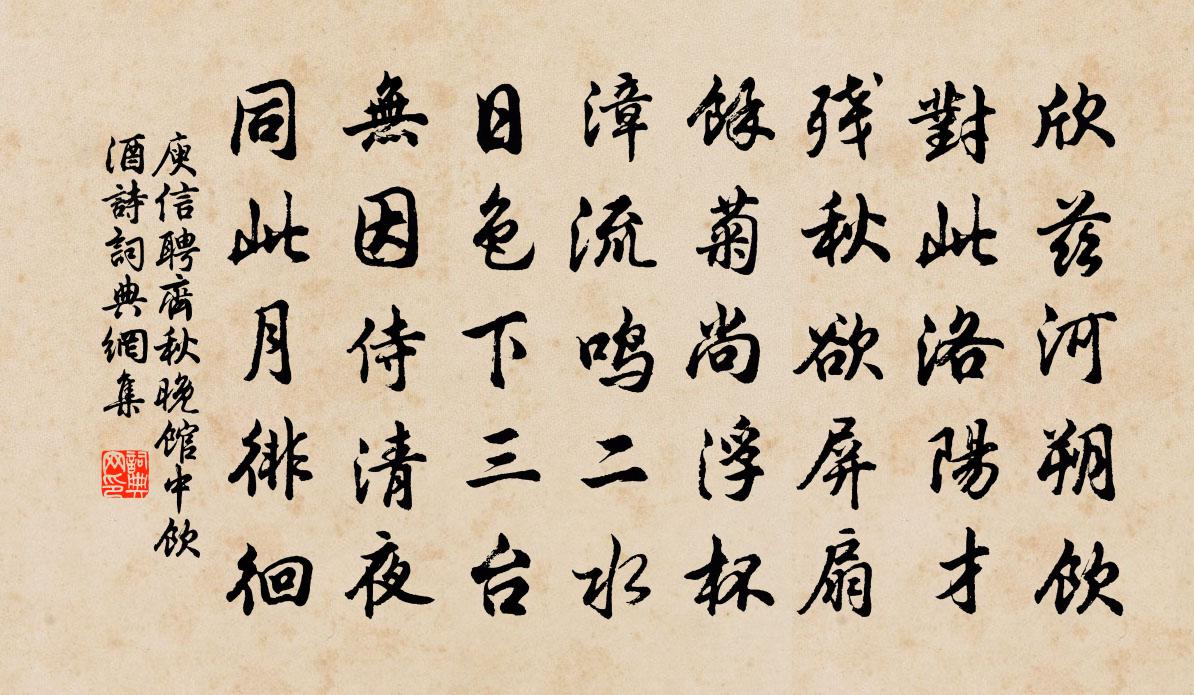 欣兹河朔飲
對此洛陽才
残秋欲屏扇
餘菊尚浮杯
漳流鳴二水
日色下三台
無因侍清夜
同此月徘徊
庾信聘齊秋晚館中飲
酒詩詞典網集
詞典
网印